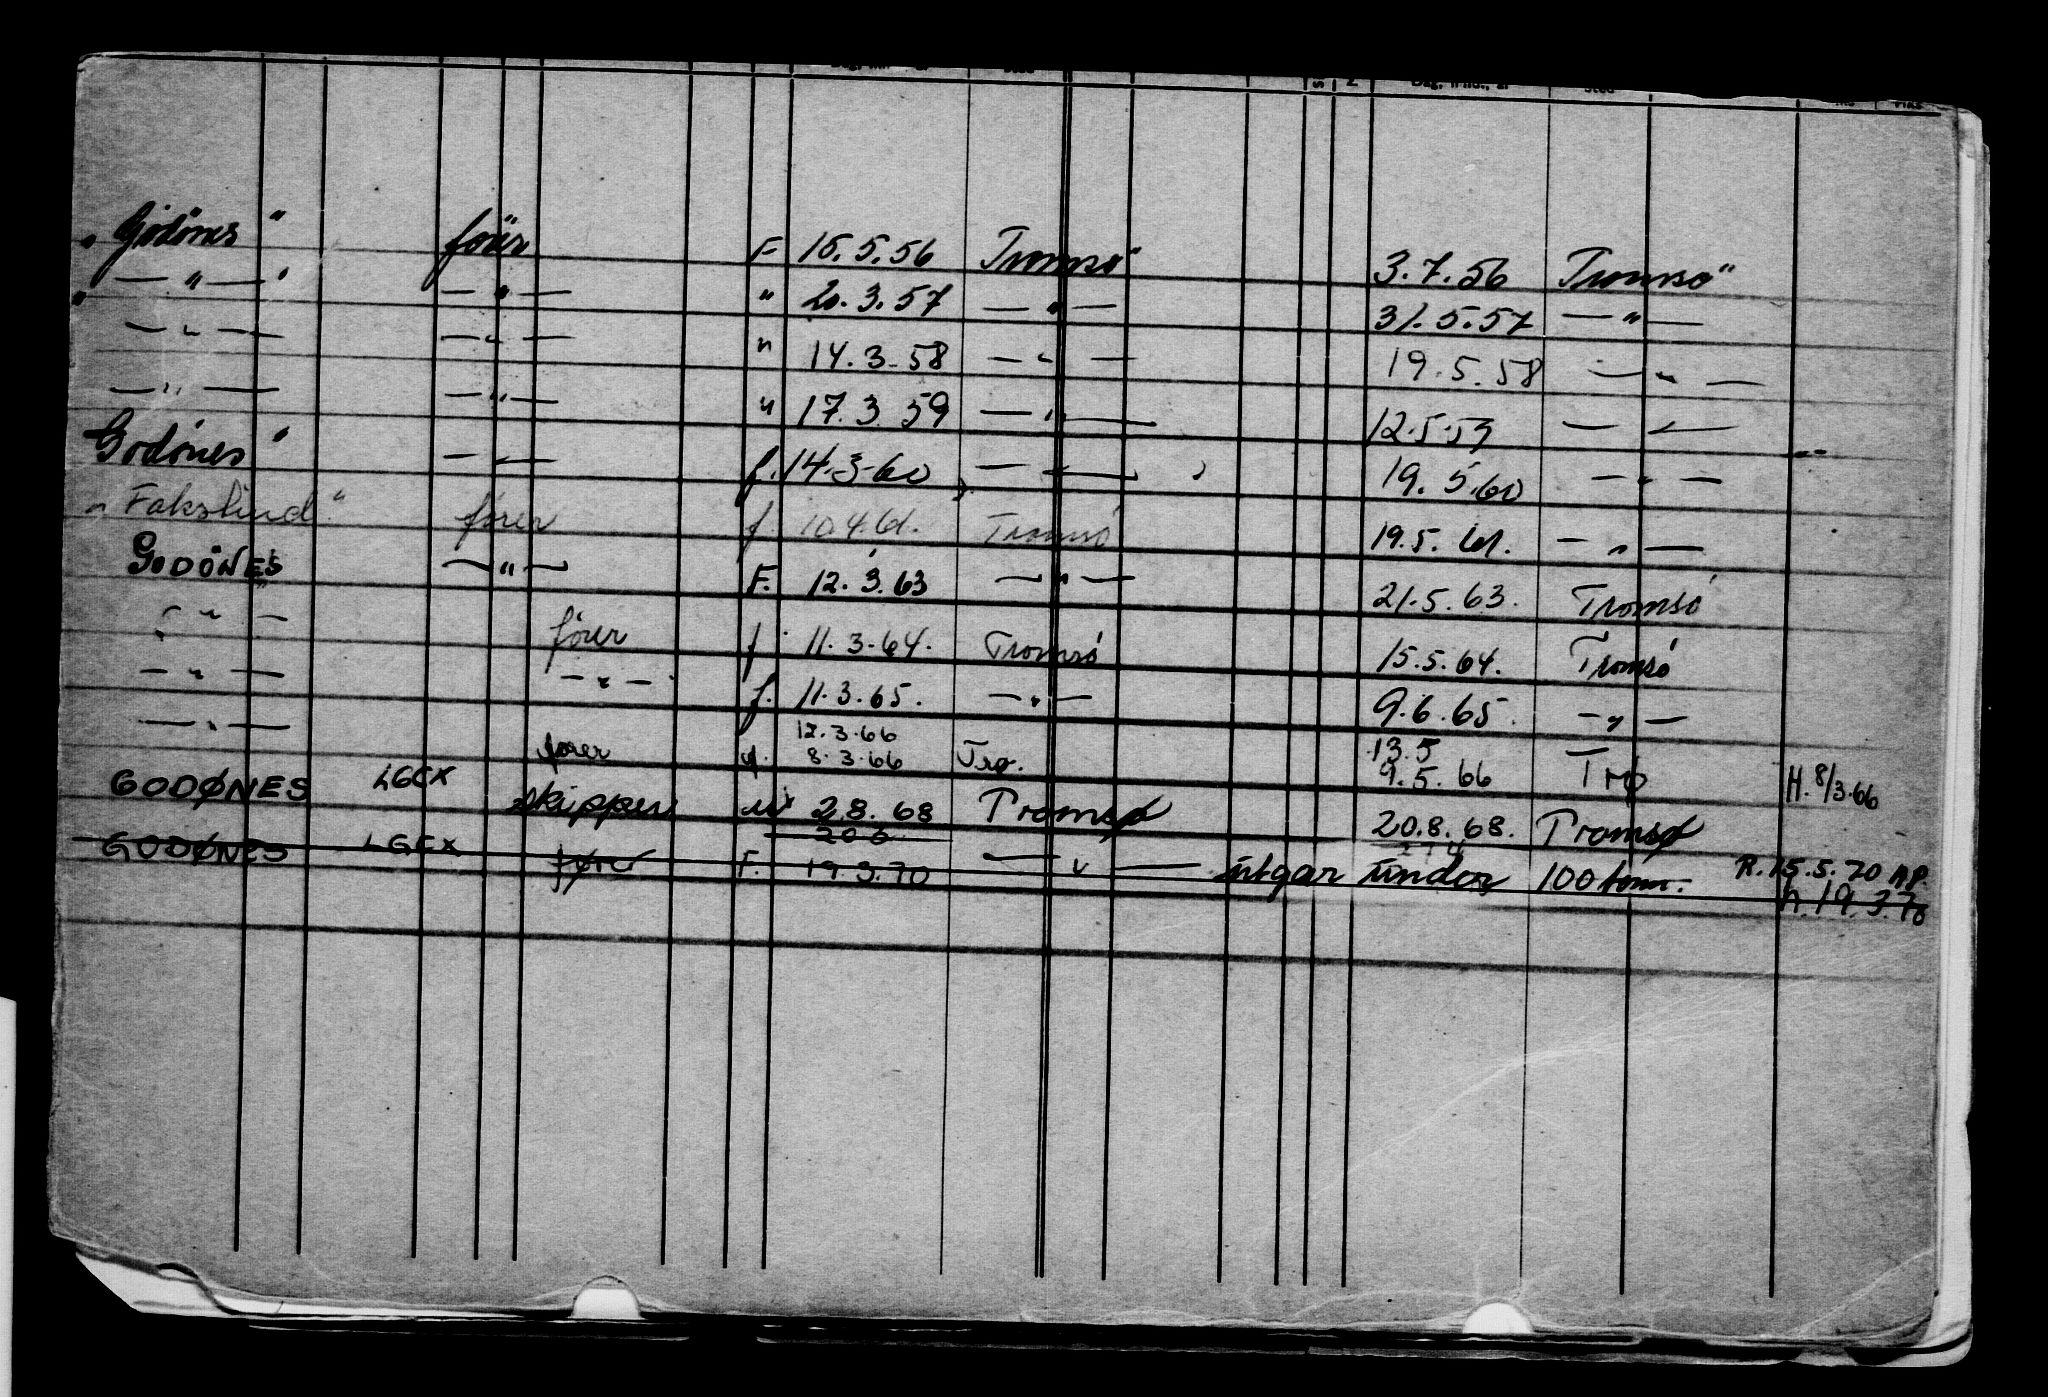 „Godönes" förer F 15.5.56 Tromsö 3.7.56 Tromsö
„ — " — " — " — " 20.3.57 — " — 31.5.57 — " —
— " — — " — " 14.3.58 — " — 19.5.58 — " —
— " — — " — " 17.3.59 — " — 12.5.59 — " —
Godönes" — " — f. 14.3.60 — " — 19.5.60 — " —
„Fakstind" förer f. 10.4.61. Tromsö 19.5.61. — " —
GODÖNES — " — F. 12.3.63 — " — 21.5.63. Tromsö
— " — förer f 11.3.64. Tromsö 15.5.64. Tromsö
— " — — " — f. 11.3.65. — " — 9.6.65. — " —
— " — 12.3.66 13.5
förer f. 8.3.66 Trø. 9.5.66 Trø H. 8/3.66
GODØNES LGCX skipper M 2.8.68 Tromsø 20.8.68. Tromsø
GODØNES LGCX fører F. 19.3.70 — " — utgar under 100 tonn. R.15.5.70 AP.
h.19.3.70